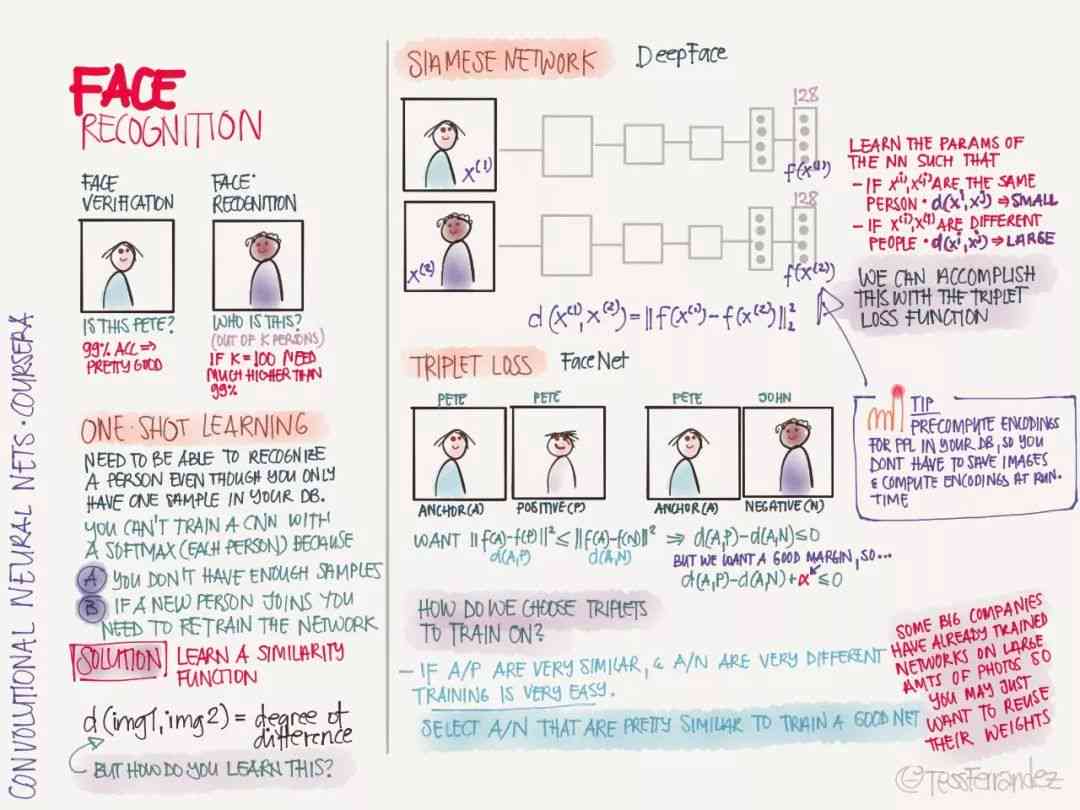 CONVOLUTIONAL NEURAL NETS · COURSERA
FACE
RECOGNITION
FACE
VERIFICATION
IS THIS PETE?
99% ACC ⇒
PRETTY GOOD
FACE
RECOGNITION
WHO IS THIS?
(OUT OF K PERSONS)
IF K=100 NEED
MUCH HIGHER THAN
99%
ONE-SHOT LEARNING
NEED TO BE ABLE TO RECOGNIZE
A PERSON EVEN THOUGH YOU ONLY
HAVE ONE SAMPLE IN YOUR DB.
YOU CAN'T TRAIN A CNN WITH
A SOFTMAX (EACH PERSON) BECAUSE
A YOU DON'T HAVE ENOUGH SAMPLES
B IF A NEW PERSON JOINS YOU
NEED TO RETRAIN THE NETWORK
SOLUTION LEARN A SIMILARITY
FUNCTION
d(img1, img2) = degree of
difference
BUT HOW DO YOU LEARN THIS?
SIAMESE NETWORK DeepFace
x⁽¹⁾
128
f(x⁽¹⁾)
x⁽²⁾
128
f(x⁽²⁾)
d(x⁽¹⁾, x⁽²⁾) = ||f(x⁽¹⁾) - f(x⁽²⁾)||₂²
LEARN THE PARAMS OF
THE NN SUCH THAT
- IF x⁽ⁱ⁾, x⁽ʲ⁾ ARE THE SAME
PERSON · d(xⁱ, xʲ) ⇒ SMALL
- IF x⁽ⁱ⁾, x⁽ʲ⁾ ARE DIFFERENT
PEOPLE · d(xⁱ, xʲ) ⇒ LARGE
WE CAN ACCOMPLISH
THIS WITH THE TRIPLET
LOSS FUNCTION
TIP
PRECOMPUTE ENCODINGS
FOR PPL IN YOUR DB, SO YOU
DONT HAVE TO SAVE IMAGES
& COMPUTE ENCODINGS AT RUN-
TIME
TRIPLET LOSS FaceNet
PETE PETE PETE JOHN
ANCHOR (A) POSITIVE (P) ANCHOR (A) NEGATIVE (N)
WANT ||f(A)-f(P)||² ≤ ||f(A)-f(N)||² ⇒ d(A,P)-d(A,N) ≤ 0
d(A,P) d(A,N)
BUT WE WANT A GOOD MARGIN, SO...
d(A,P)-d(A,N)+α ≤ 0
HOW DO WE CHOOSE TRIPLETS
TO TRAIN ON?
- IF A/P ARE VERY SIMILAR, & A/N ARE VERY DIFFERENT
TRAINING IS VERY EASY.
SELECT A/N THAT ARE PRETTY SIMILAR TO TRAIN A GOOD NET
SOME BIG COMPANIES
HAVE ALREADY TRAINED
NETWORKS ON LARGE
AMTS OF PHOTOS SO
YOU MAY JUST
WANT TO REUSE
THEIR WEIGHTS
@TessFerrandez